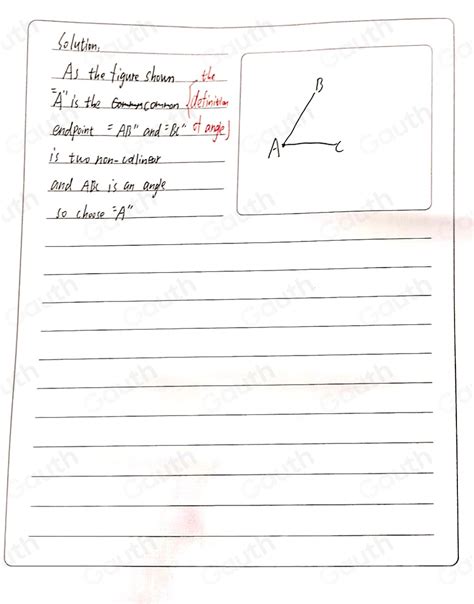 Solution,
As the figure shown the
"A" is the common (definition
endpoint "AB" and "BC" of angle)
is two non-collinear
and ABC is an angle
so choose "A"
B
A
C